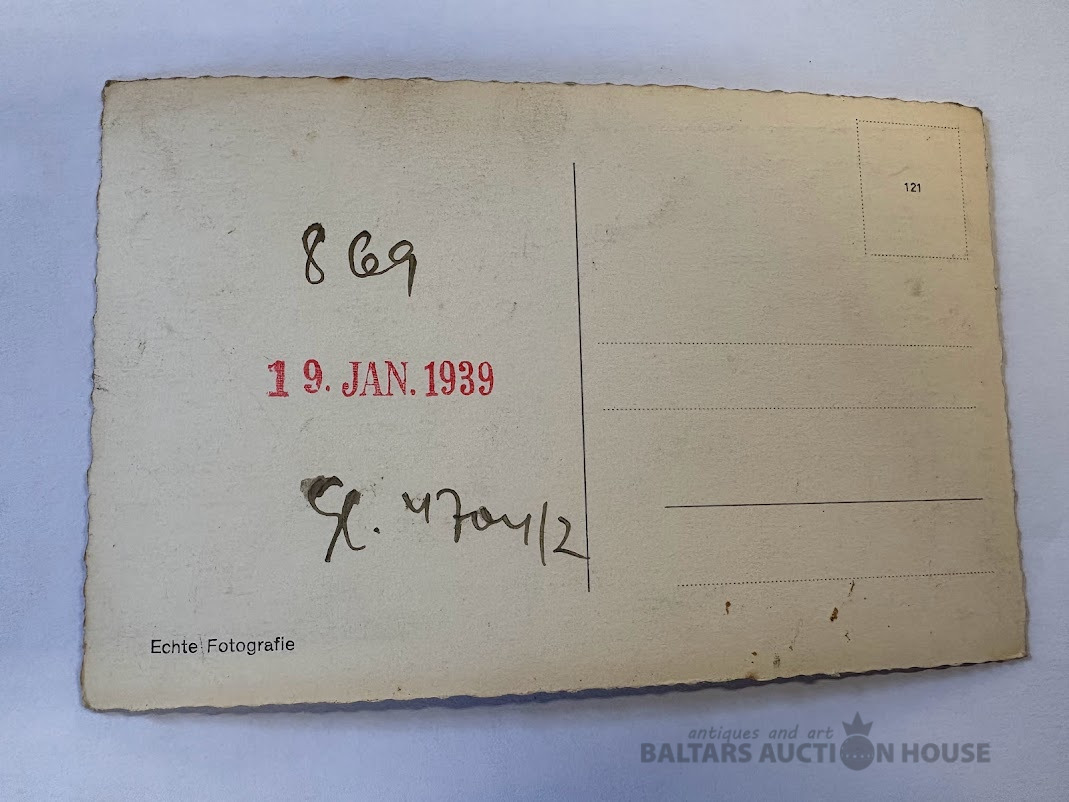 121
869
19. JAN. 1939
4704/2
Echte Fotografie
antiques and art
BALTARS AUCTION HOUSE